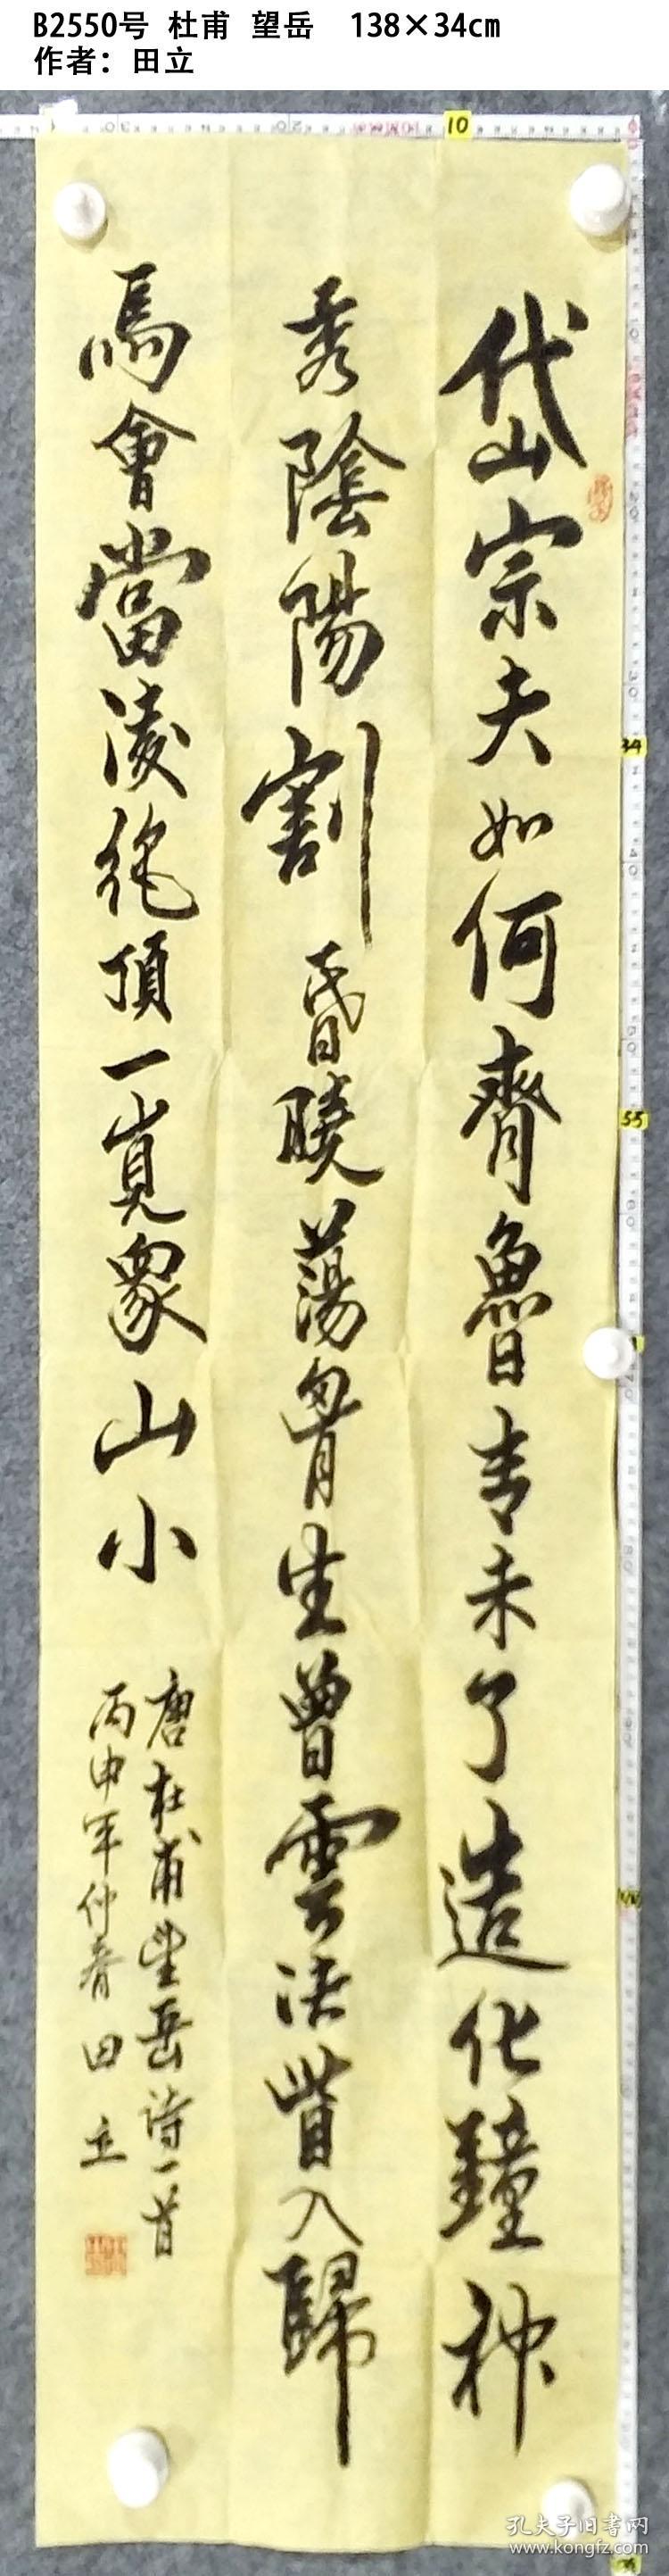 B2550号 杜甫 望岳 138×34cm
作者：田立
岱宗夫如何齊魯青未了造化鐘神
秀陰陽割昬曉蕩胷生曾雲決眥入歸
鳥會當淩絕頂一覽眾山小
唐杜甫望岳詩一首
丙申年仲春田立
10
34
55
孔夫子旧书网
www.kongfz.com